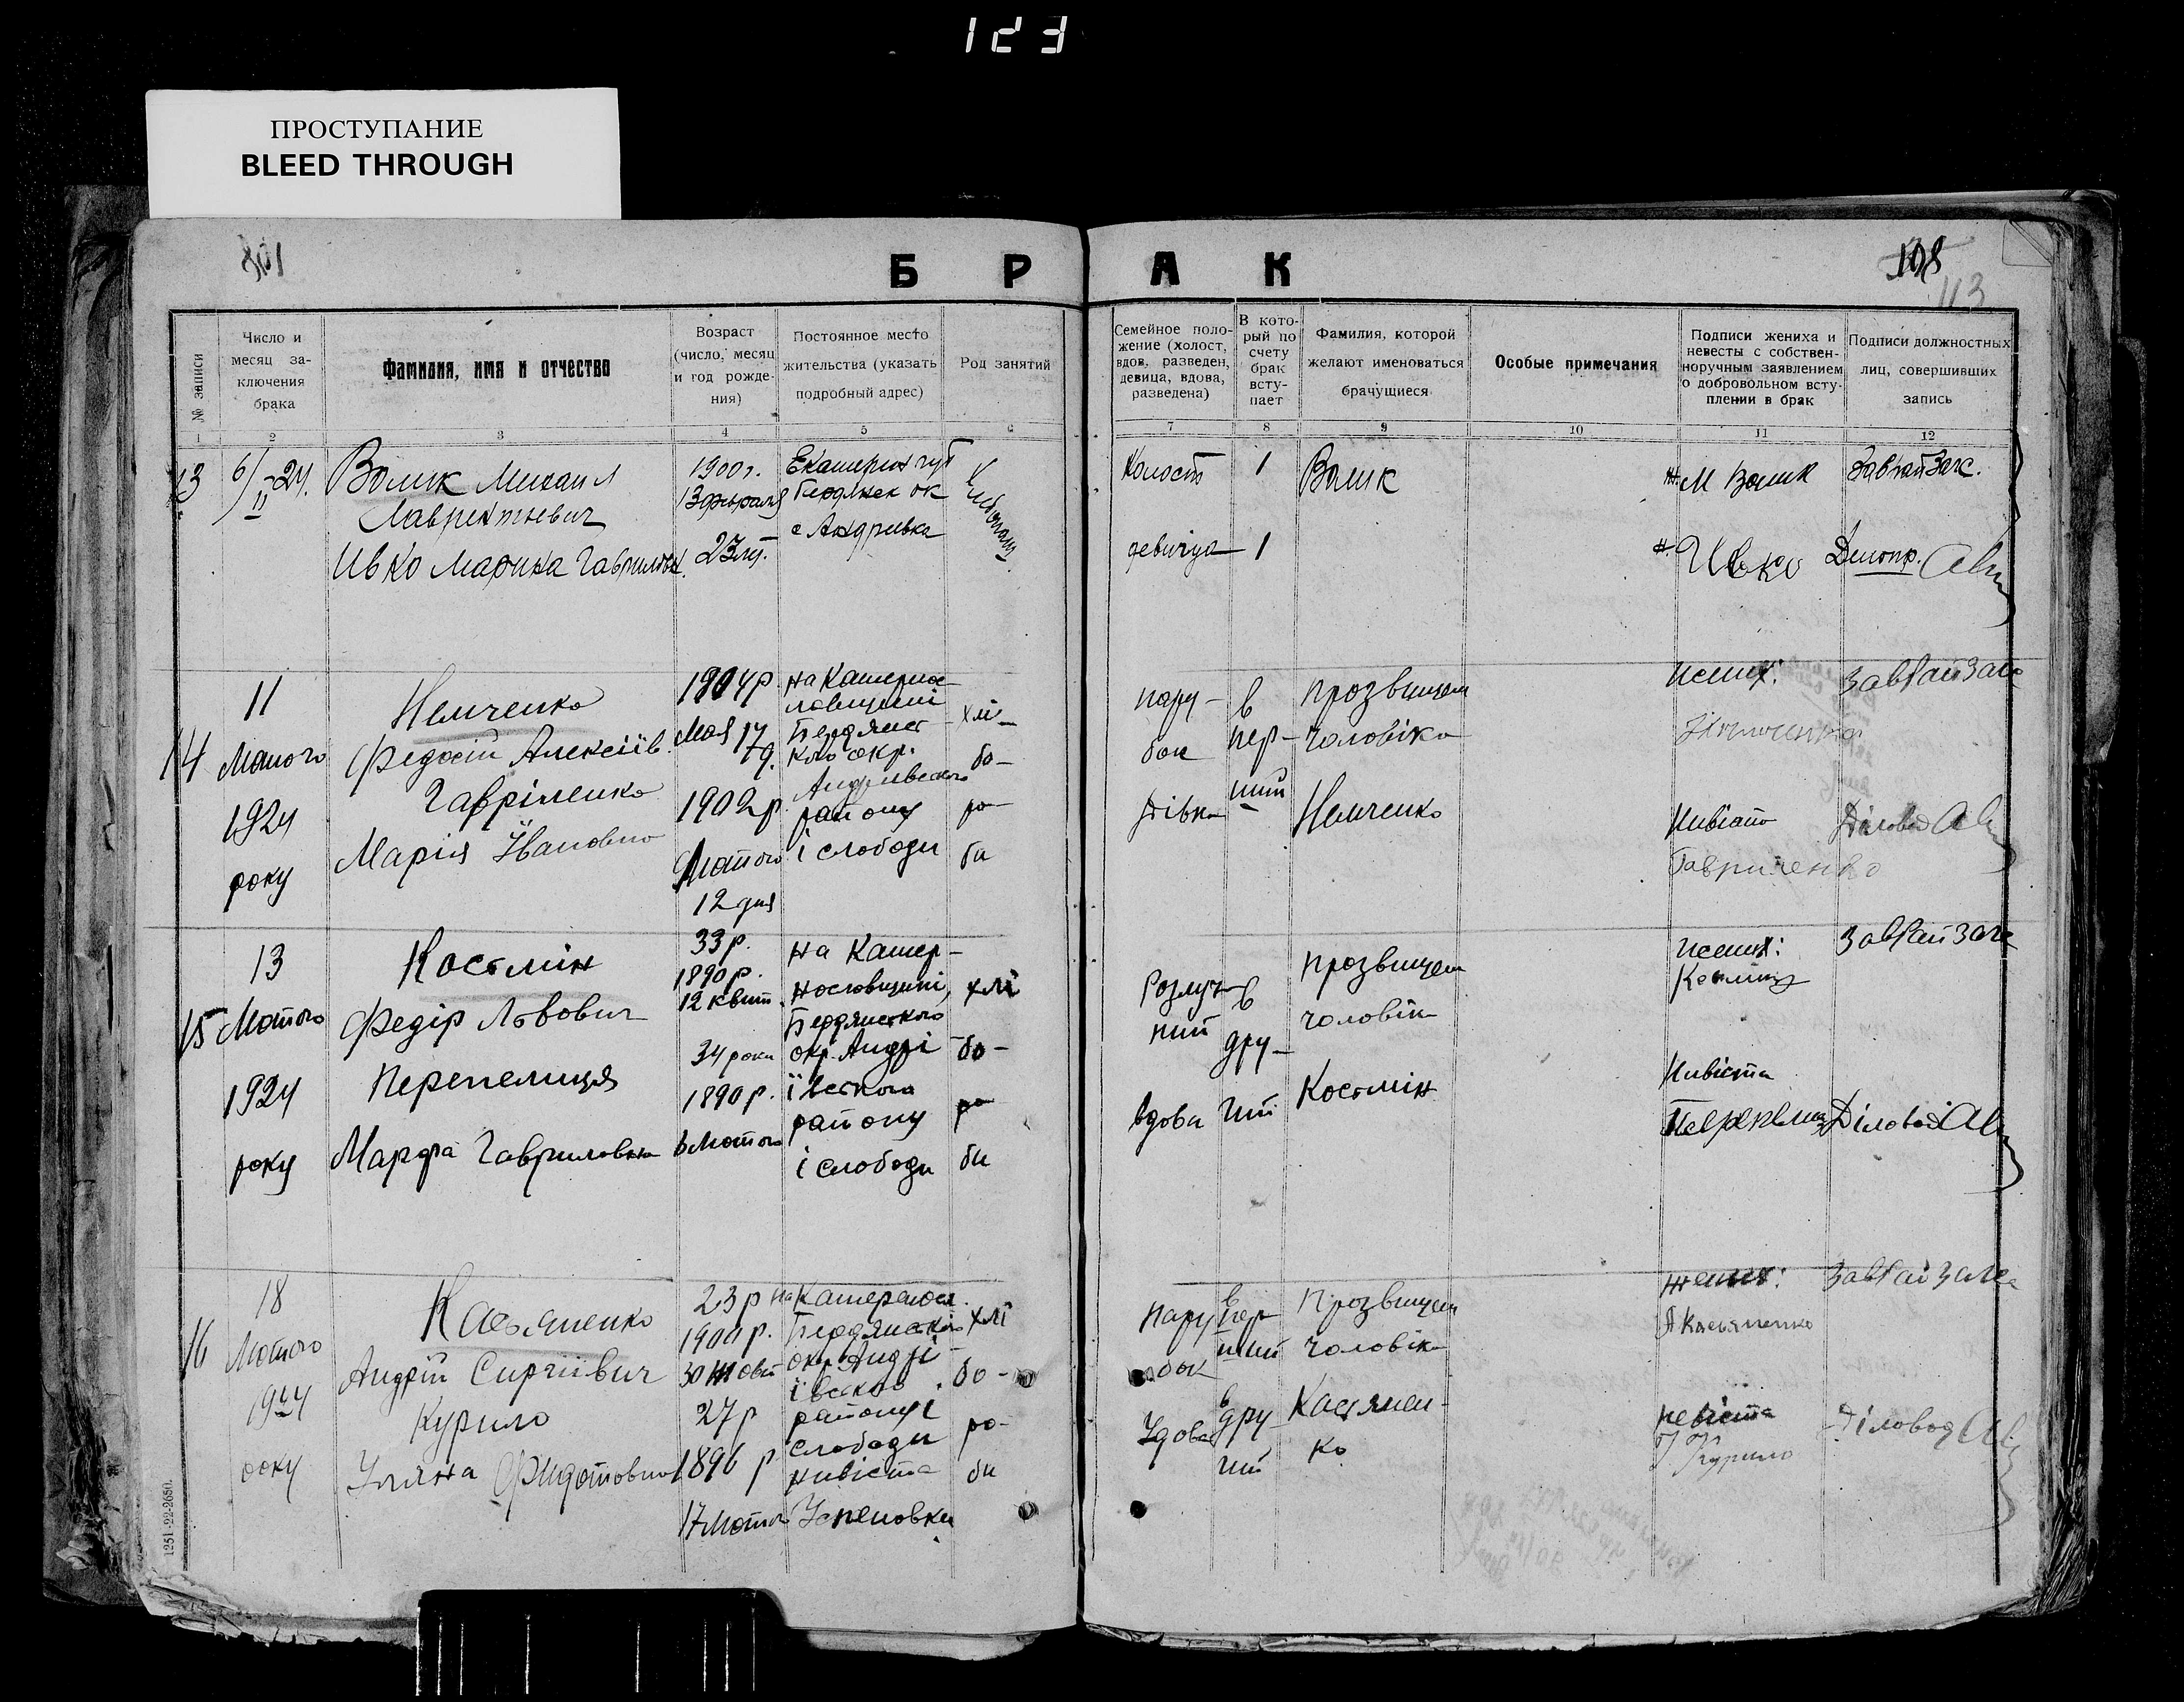 123
ПРОСТУПАНИЕ
BLEED THROUGH
801
108
113
Б Р А К
№ записи
Число и месяц за-
ключения
брака
Фамилия, имя и отчество
Возраст
(число, месяц
и год рожде-
ния)
Постоянное место
жительства (указать
подробный адрес)
Род занятий
Семейное поло-
жение (холост,
вдов, разведен,
девица, вдова,
разведена)
В кото-
рый по
счету
брак
всту-
пает
Фамилия, которой
желают именоваться
брачущиеся
Особые примечания
Подписи жениха и
невесты с собствен-
норучным заявлением
о добровольном всту-
плении в брак
Подписи должностных
лиц, совершивших
запись
1 2 3 4 5 6 7 8 9 10 11 12
13
6/II-24.
Волик Михаил
Лаврентиевич
Ивко Марина Гаврилов.
1900 г.
13 февраля
23 л.
Екатерин губ
Бердянск ок
с Андривка
Холост
девиция
1
1
Волик
М Волик
Ивко
ЗавРайЗагс.
Делопр.
14
11
Лютого
1924
року
Немченко
Федосій Алексіїв
Гавріленко
Марія Івановно
1904 р.
Мая 17
д.
1902 р
Лютого
12 дня
на Катерино-
славщині
Бердянсь-
кло окр.
Андріівского
району
і слободи
хлі-
бо-
ро-
би
пару-
бок
дівка
в
пер-
ший
прозвищем
чоловіка
Немченко
жених:
Нивіста
Гавриленко
ЗавРайЗагс
Діловод
15
13
Лютого
1924
року
Костмін
Федір Львович
Перепелиця
Марфа Гавриловна
33 р.
1890 р.
12 квіт.
34 роки
1890 р.
6 Лютого
на Катер-
нословщині,
Бердянського
окр. Андрі
ївського
району
і слободи
хлі
бо-
ро
би
Розлуч-
ний
вдова
в
дру-
гий
прозвищем
чоловік
Костмін
жених:
Нивіста
ЗавРайЗагс
Діловод
16
18
Лютого
1924
року
Касьяненко
Андрій Сиргіївич
Курило
Уляна Фидотовно
23 р
1900 р.
30 Жовт
27 р
1896 р
17 Лютого
на Катеренос.
Бердянсько
окр. Андрі-
ївсько
району і
слободи
нивіста
Успеновки
хлі
бо-
ро-
би
пару
бок
Удова
в
пер
ший
в
дру-
гий
Прозвищем
чоловік
Касянен-
ко
жених:
А Касьяненко
невіста
У. Курило
ЗавРайЗагс
Діловод
1251-22-2650.